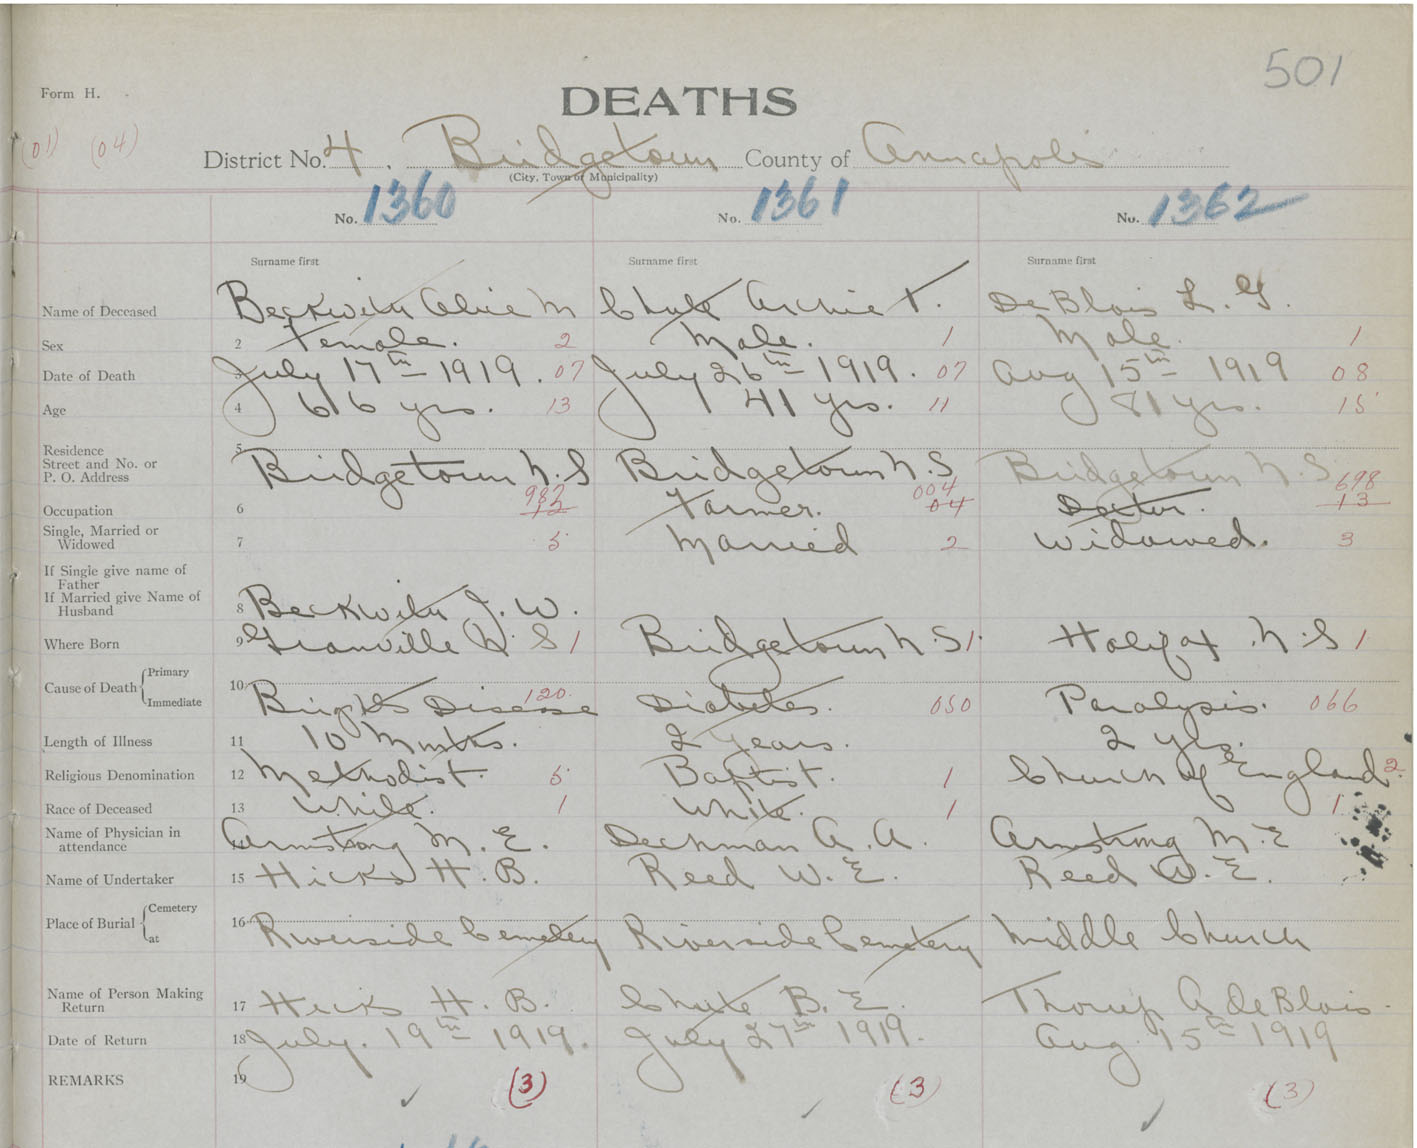 501
Form H.
DEATHS
(01) (04)
District No. 4. Bridgetown County of Annapolis
(City, Town or Municipality)
No. 1360 No. 1361 No. 1362
Surname first Surname first Surname first
Name of Deceased Beckwith Alice M Chute Archie T. DeBlois L. G.
Sex 2 Female. 2 Male. 1 Male. 1
Date of Death 3 July 17th 1919. 07 July 26th 1919. 07 Aug 15th 1919 08
Age 4 66 yrs. 13 41 yrs. 11 81 yrs. 15
Residence 5
Street and No. or
P. O. Address Bridgetown N.S Bridgetown N.S Bridgetown N.S
982 004 698
Occupation 6 12 Farmer. 04 Doctor. 13
Single, Married or
Widowed 7 5 Married 2 Widowed. 3
If Single give name of
Father
If Married give Name of
Husband 8 Beckwith J. W.
Where Born 9 Granville N. S 1 Bridgetown N.S 1 Halifax N.S 1
Cause of Death Primary 10
Immediate Brights Disease 120 Diabetes. 050 Paralysis. 066
Length of Illness 11 10 Months. 2 Years. 2 yrs.
Religious Denomination 12 Methodist. 5 Baptist. 1 Church of England 2
Race of Deceased 13 White. 1 White. 1 1
Name of Physician in
attendance Armstrong M. E. Dechman A. A. Armstrong M. E
Name of Undertaker 15 Hicks H. B. Reed W. E. Reed W. E.
Place of Burial Cemetery 16
at Riverside Cemetery Riverside Cemetery Middle Church
Name of Person Making
Return 17 Hicks H. B. Chute B. E. A deBlois
Date of Return 18 July. 19th 1919. July 27th 1919. Aug. 15th 1919
REMARKS 19 (3) (3) (3)